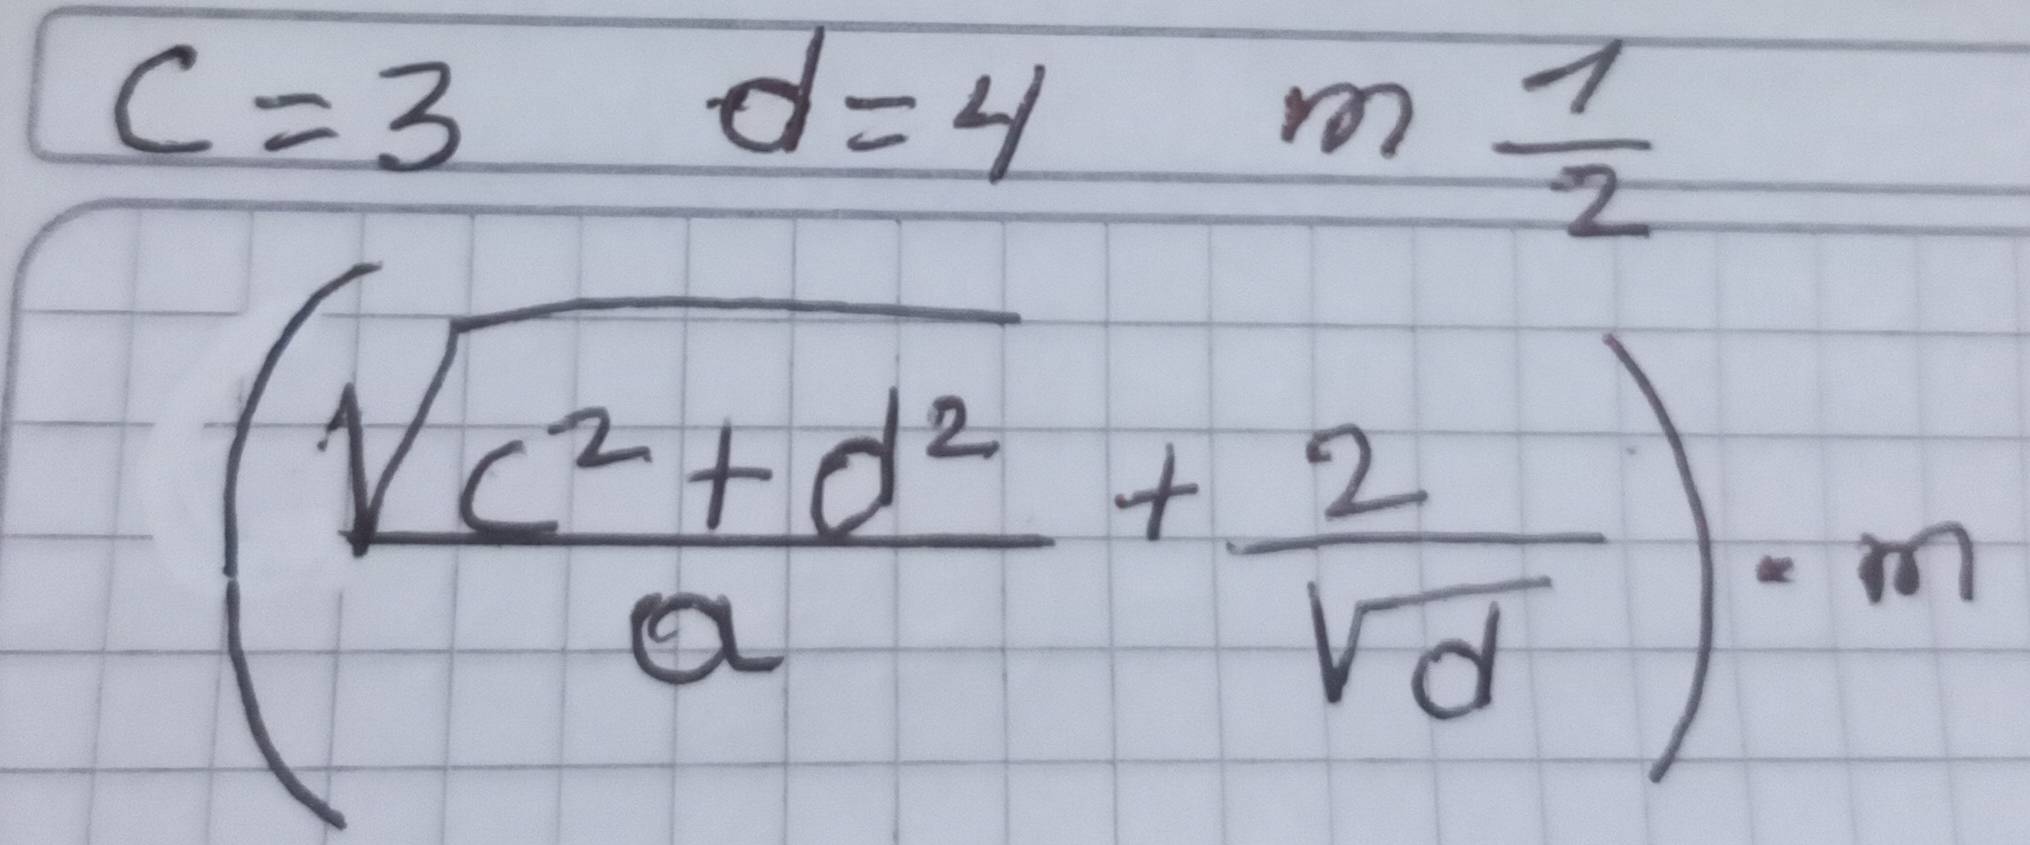 C = 3 d = 4 m 1/2
(√(c² + d²)/a + 2/√d) · m